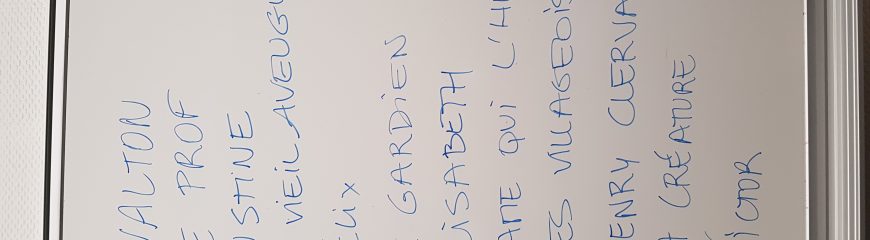 WALTON
PROF
STINE
VIEIL AVEUGL
LIX
GARDIEN
ISABETH
AME QUI L'H
ES VILLAGEOIS
ENRY CLERVA
CRÉATURE
ICTOR